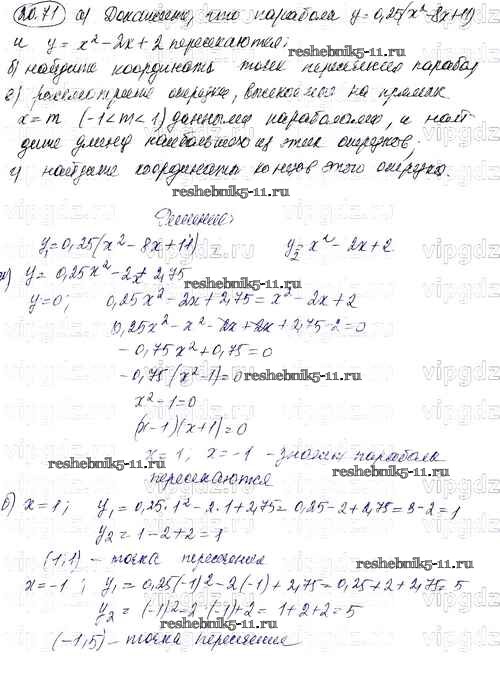 20.71 а) Докажите, что парабола y=0,25(x²-8x+11)
и y=x²-2x+2 пересекаются;
б) найдите координаты точек пересечения парабол
в) рассмотрите отрезки, высекаемые на прямых
x=m (-1<m<1) данными параболами, и най-
дите длину наибольшего из этих отрезков;
г) найдите координаты концов этого отрезка.
reshebnik5-11.ru
Решение:
y₁=0,25(x²-8x+11) y₂=x²-2x+2
а) y=0,25x²-2x+2,75
y=0; 0,25x²-2x+2,75=x²-2x+2
0,25x²-x²-2x+2x+2,75-2=0
-0,75x²+0,75=0
-0,75(x²-1)=0
reshebnik5-11.ru
x²-1=0
(x-1)(x+1)=0
x=1, x=-1 - значит параболы
reshebnik5-11.ru
пересекаются
б) x=1; y₁=0,25·1²-2·1+2,75=0,25-2+2,75=3-2=1
y₂=1-2+2=1
(1,1) - точка пересечения
x=-1; y₁=0,25(-1)²-2(-1)+2,75=0,25+2+2,75=5
y₂=(-1)²-2·(-1)+2=1+2+2=5
(-1,5) - точка пересечения
reshebnik5-11.ru